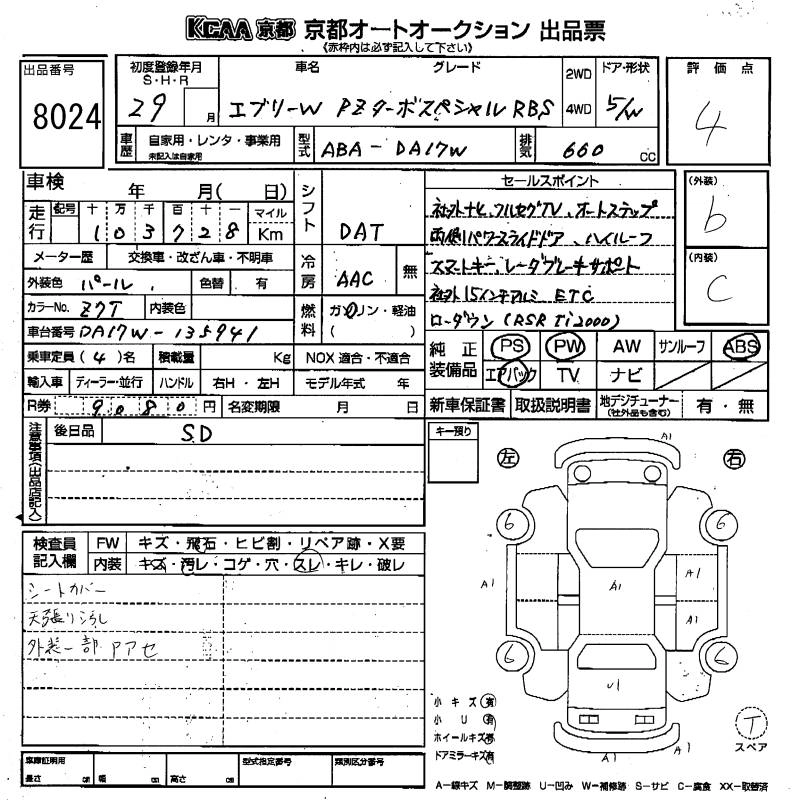 KCAA 京都 京都オートオークション 出品票
《赤枠内は必ず記入して下さい》
出品番号
8024
初度登録年月
S・H・R
29 月
車名 グレード
エブリーW PZターボスペシャル RBS
2WD
4WD
ドア・形状
5/W
評価点
4
車歴
自家用・レンタ・事業用
未記入は自家用
型式
ABA-DA17W
排気
660 CC
車検 年 月( 日)
走行
記号 十 万 千 百 十 一 マイル
103728 Km
メーター歴 交換車・改ざん車・不明車
外装色 パール 色替 有
カラーNo. Z7T 内装色
車台番号 DA17W-135941
乗車定員 (4)名 積載量 Kg NOX 適合・不適合
輸入車 ディーラー・並行 ハンドル 右H・左H モデル年式 年
R券 9080 円 名変期限 月 日
シフト
DAT
冷房
AAC 無
燃料
ガソリン・軽油
( )
セールスポイント
社外ナビ、フルセグTV、オートステップ
両側パワースライドドア、ハイルーフ
スマートキー、レーダブレーキサポート
社外15インチアルミ ETC
ローダウン(RSR Ti2000)
(外装)
b
(内装)
C
純正装備品
PS PW AW サンルーフ ABS
エアバック TV ナビ
新車保証書 取扱説明書 地デジチューナー
(社外品も含む)
有・無
注意事項(出品店記入)
後日品 SD
キー預り
左 右
A1
6 6
A1 A1 A1
A1
6 6
U1
A1 A1
検査員記入欄
FW キズ・飛石・ヒビ割・リペア跡・X要
内装 キズ・汚レ・コゲ・穴・スレ・キレ・破レ
シートカバー
天張り汚し
外装一部 アセ
小キズ 有
小U 有
ホイールキズ 有
ドアミラーキズ 有
T
スペア
車庫証明用
長さ cm 幅 cm 高さ cm
型式指定番号 類別区分番号
A-線キズ M-調整跡 U-凹み W-補修跡 S-サビ C-腐食 XX-取替済